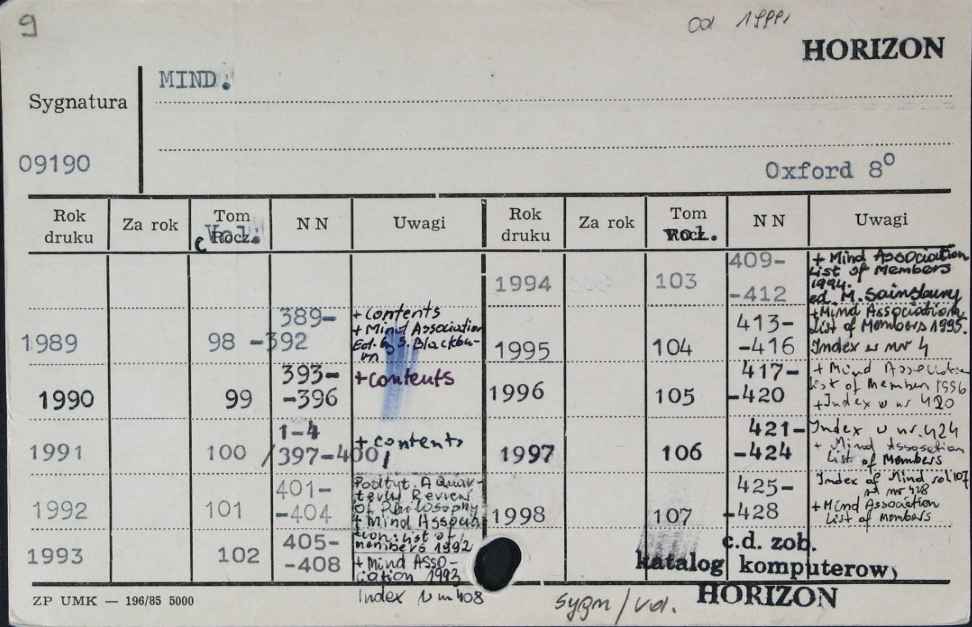 9
od 1999r
HORIZON
MIND.
Sygnatura
09190
Oxford 8°
Rok druku Za rok Tom Rocz. Vol. NN Uwagi Rok druku Za rok Tom vol. NN Uwagi
1989 98 389-392 + contents
+ Mind Association
Ed. by S. Blackburn
1990 99 393-396 + contents
1991 100 1-4 /397-400/ + contents
1992 101 401-404 Podtyt. A Quarterly Review
of Philosophy
+ Mind Association: list of
members 1992
1993 102 405-408 + Mind Association 1993
Index w nr 408
1994 103 409-412 + Mind Association
List of Members
1994.
ed. M. Sainsbury
1995 104 413-416 + Mind Association
List of Members 1995.
Index w nr 4
1996 105 417-420 + Mind Association
List of Members 1996
+ Index w nr 420
1997 106 421-424 Index w nr 424
+ Mind Association
List of Members
1998 107 425-428 Index of Mind vol 107
w nr 428
+ Mind Association
List of Members
c.d. zob.
katalog komputerow,
HORIZON
ZP UMK — 196/85 5000
sygn/vol.